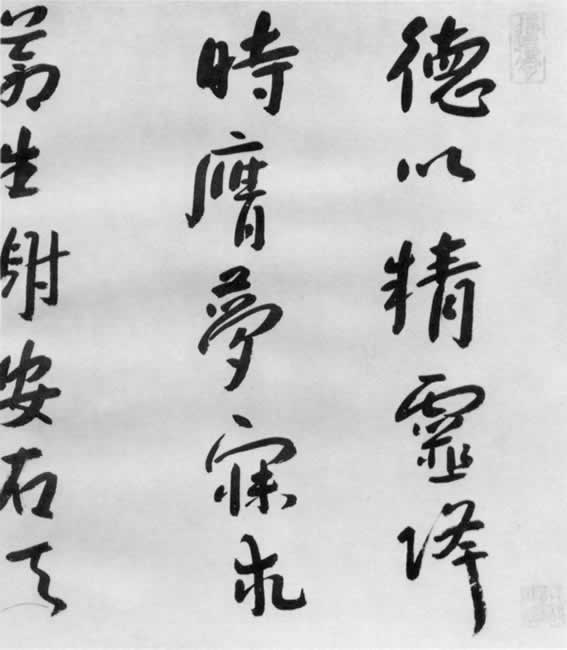 德以精靈降
時膺夢寐求
蒼生謝安石天